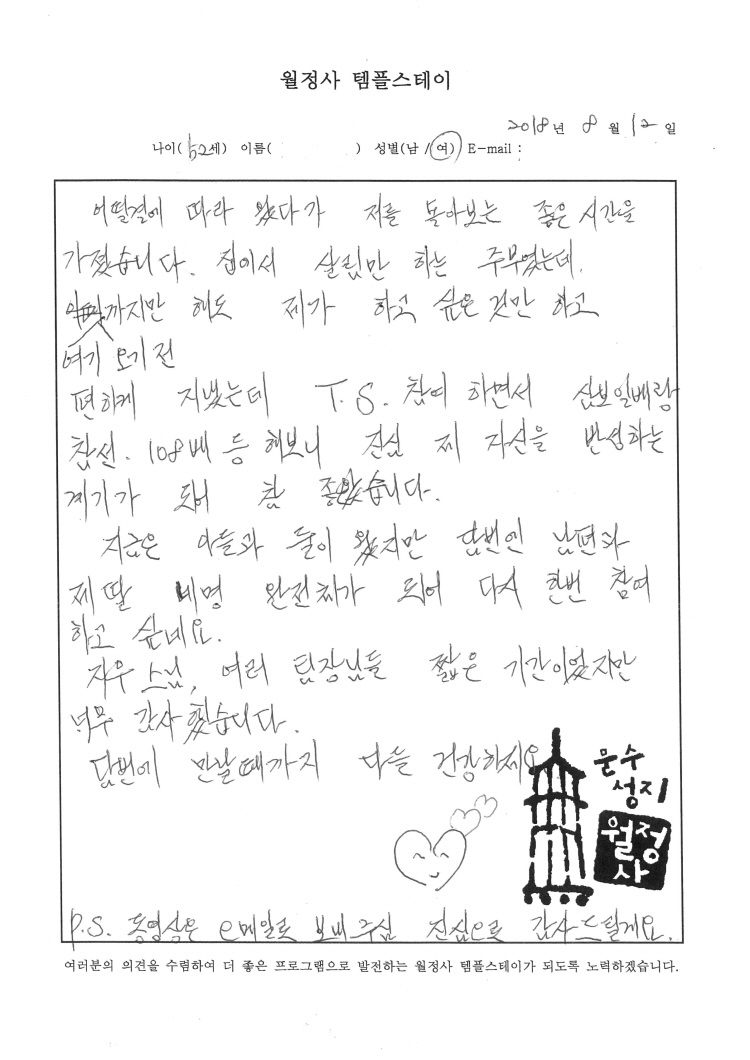 월정사 템플스테이
2018년 8월 12일
나이( 52세) 이름( ) 성별(남 / 여) E-mail :
어떨결에 따라 왔다가 저를 돌아보는 좋은 시간을
가졌습니다. 집에서 살림만 하는 주부였는데.
까지만 해도 제가 하고 싶은 것만 하고
여기 오기 전
편하게 지냈는데 T.S. 참여 하면서 삼보일배랑
참선. 108배 등 해보니 진심 제 자신을 반성하는
계기가 되어 참 좋았습니다.
지금은 아들과 둘이 왔지만 담번엔 남편과
제 딸 네명 완전체가 되어 다시 한번 참여
하고 싶네요.
자우 스님, 여러 팀장님들 짧은 기간이었지만
너무 감사했습니다.
담번에 만날때까지 다들 건강하세요
문수
성지
월정
사
P.S. 동영상은 e메일로 보내주심 진심으로 감사드릴게요.
여러분의 의견을 수렴하여 더 좋은 프로그램으로 발전하는 월정사 템플스테이가 되도록 노력하겠습니다.